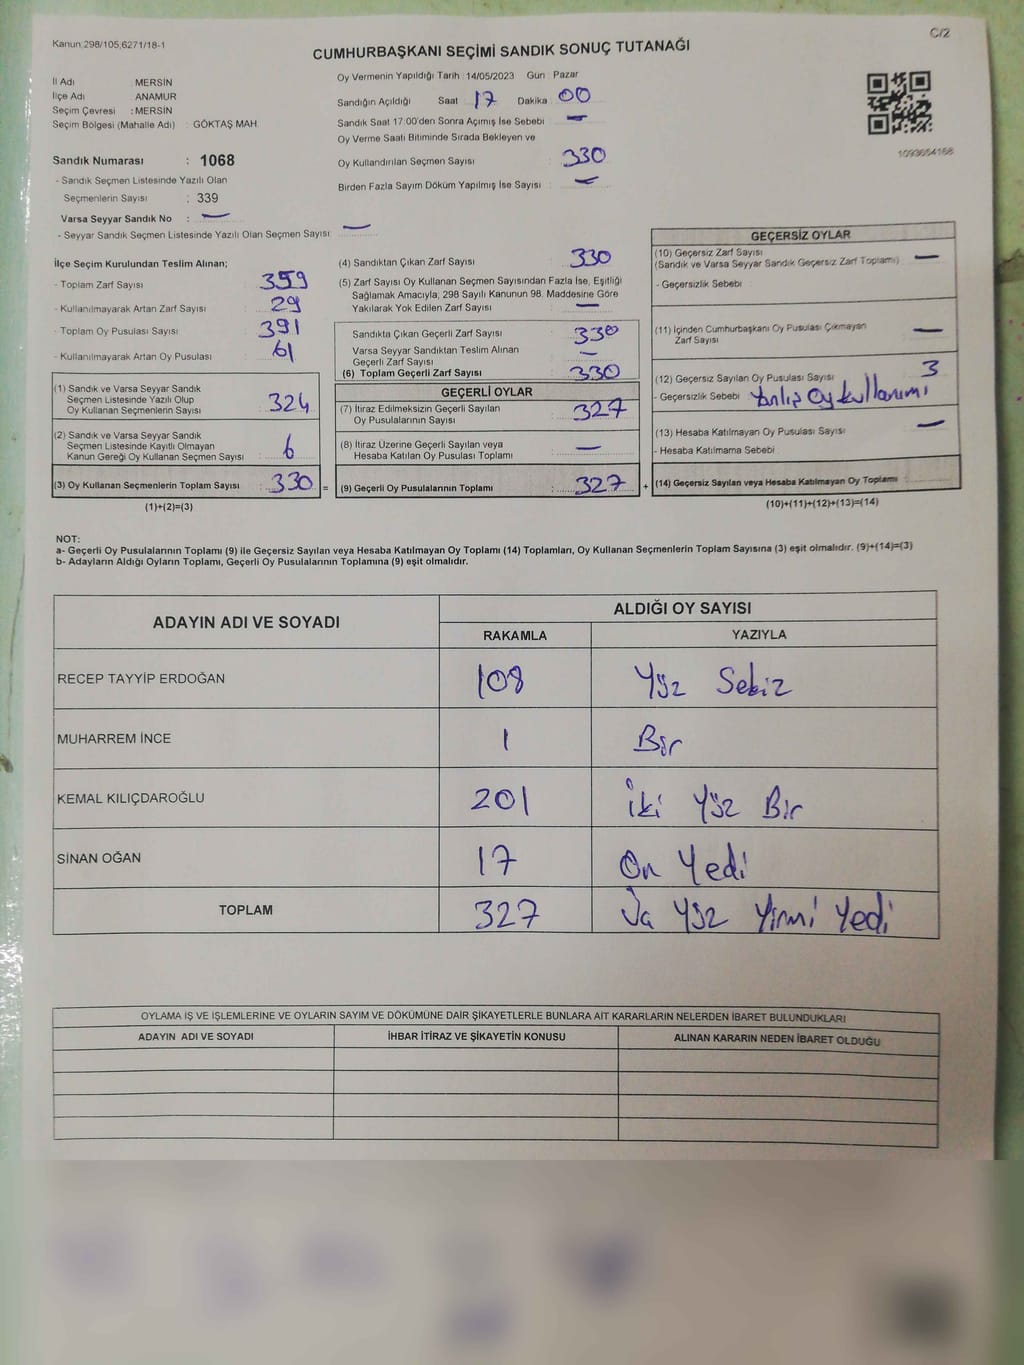 Kanun 298/105,6271/18-1
C/2
CUMHURBAŞKANI SEÇİMİ SANDIK SONUÇ TUTANAĞI
İl Adı : MERSİN
İlçe Adı : ANAMUR
Seçim Çevresi : MERSİN
Seçim Bölgesi (Mahalle Adı) : GÖKTAŞ MAH.
Oy Vermenin Yapıldığı Tarih : 14/05/2023 Gün : Pazar
Sandığın Açıldığı Saat 17 Dakika 00
Sandık Saat 17:00'den Sonra Açımış İse Sebebi : —
Oy Verme Saati Bitiminde Sırada Bekleyen ve
Oy Kullandırılan Seçmen Sayısı : 330
Birden Fazla Sayım Döküm Yapılmış İse Sayısı : —
1093654168
Sandık Numarası : 1068
- Sandık Seçmen Listesinde Yazılı Olan
Seçmenlerin Sayısı : 339
Varsa Seyyar Sandık No : —
- Seyyar Sandık Seçmen Listesinde Yazılı Olan Seçmen Sayısı: —
İlçe Seçim Kurulundan Teslim Alınan;
- Toplam Zarf Sayısı : 359
- Kullanılmayarak Artan Zarf Sayısı : 29
- Toplam Oy Pusulası Sayısı : 391
- Kullanılmayarak Artan Oy Pusulası : 61
(1) Sandık ve Varsa Seyyar Sandık
Seçmen Listesinde Yazılı Olup
Oy Kullanan Seçmenlerin Sayısı : 324
(2) Sandık ve Varsa Seyyar Sandık
Seçmen Listesinde Kayıtlı Olmayan
Kanun Gereği Oy Kullanan Seçmen Sayısı : 6
(3) Oy Kullanan Seçmenlerin Toplam Sayısı : 330 =
(1)+(2)=(3)
(4) Sandıktan Çıkan Zarf Sayısı : 330
(5) Zarf Sayısı Oy Kullanan Seçmen Sayısından Fazla İse, Eşitliği
Sağlamak Amacıyla, 298 Sayılı Kanunun 98. Maddesine Göre
Yakılarak Yok Edilen Zarf Sayısı : —
Sandıkta Çıkan Geçerli Zarf Sayısı : 330
Varsa Seyyar Sandıktan Teslim Alınan
Geçerli Zarf Sayısı : —
(6) Toplam Geçerli Zarf Sayısı : 330
GEÇERLİ OYLAR
(7) İtiraz Edilmeksizin Geçerli Sayılan
Oy Pusulalarının Sayısı : 327
(8) İtiraz Üzerine Geçerli Sayılan veya
Hesaba Katılan Oy Pusulası Toplamı : —
(9) Geçerli Oy Pusulalarının Toplamı : 327 +
GEÇERSİZ OYLAR
(10) Geçersiz Zarf Sayısı
(Sandık ve Varsa Seyyar Sandık Geçersiz Zarf Toplamı) : —
- Geçersizlik Sebebi :
(11) İçinden Cumhurbaşkanı Oy Pusulası Çıkmayan
Zarf Sayısı : —
(12) Geçersiz Sayılan Oy Pusulası Sayısı : 3
- Geçersizlik Sebebi : Yanlış Oy kullanımı
(13) Hesaba Katılmayan Oy Pusulası Sayısı : —
- Hesaba Katılmama Sebebi :
(14) Geçersiz Sayılan veya Hesaba Katılmayan Oy Toplamı :
(10)+(11)+(12)+(13)=(14)
NOT:
a- Geçerli Oy Pusulalarının Toplamı (9) ile Geçersiz Sayılan veya Hesaba Katılmayan Oy Toplamı (14) Toplamları, Oy Kullanan Seçmenlerin Toplam Sayısına (3) eşit olmalıdır. (9)+(14)=(3)
b- Adayların Aldığı Oyların Toplamı, Geçerli Oy Pusulalarının Toplamına (9) eşit olmalıdır.
ADAYIN ADI VE SOYADI
ALDIĞI OY SAYISI
RAKAMLA YAZIYLA
RECEP TAYYİP ERDOĞAN 108 Yüz Sekiz
MUHARREM İNCE 1 Bir
KEMAL KILIÇDAROĞLU 201 İki Yüz Bir
SİNAN OĞAN 17 On Yedi
TOPLAM 327 Yüz Yirmi Yedi
OYLAMA İŞ VE İŞLEMLERİNE VE OYLARIN SAYIM VE DÖKÜMÜNE DAİR ŞİKAYETLERLE BUNLARA AİT KARARLARIN NELERDEN İBARET BULUNDUKLARI
ADAYIN ADI VE SOYADI İHBAR İTİRAZ VE ŞİKAYETİN KONUSU ALINAN KARARIN NEDEN İBARET OLDUĞU